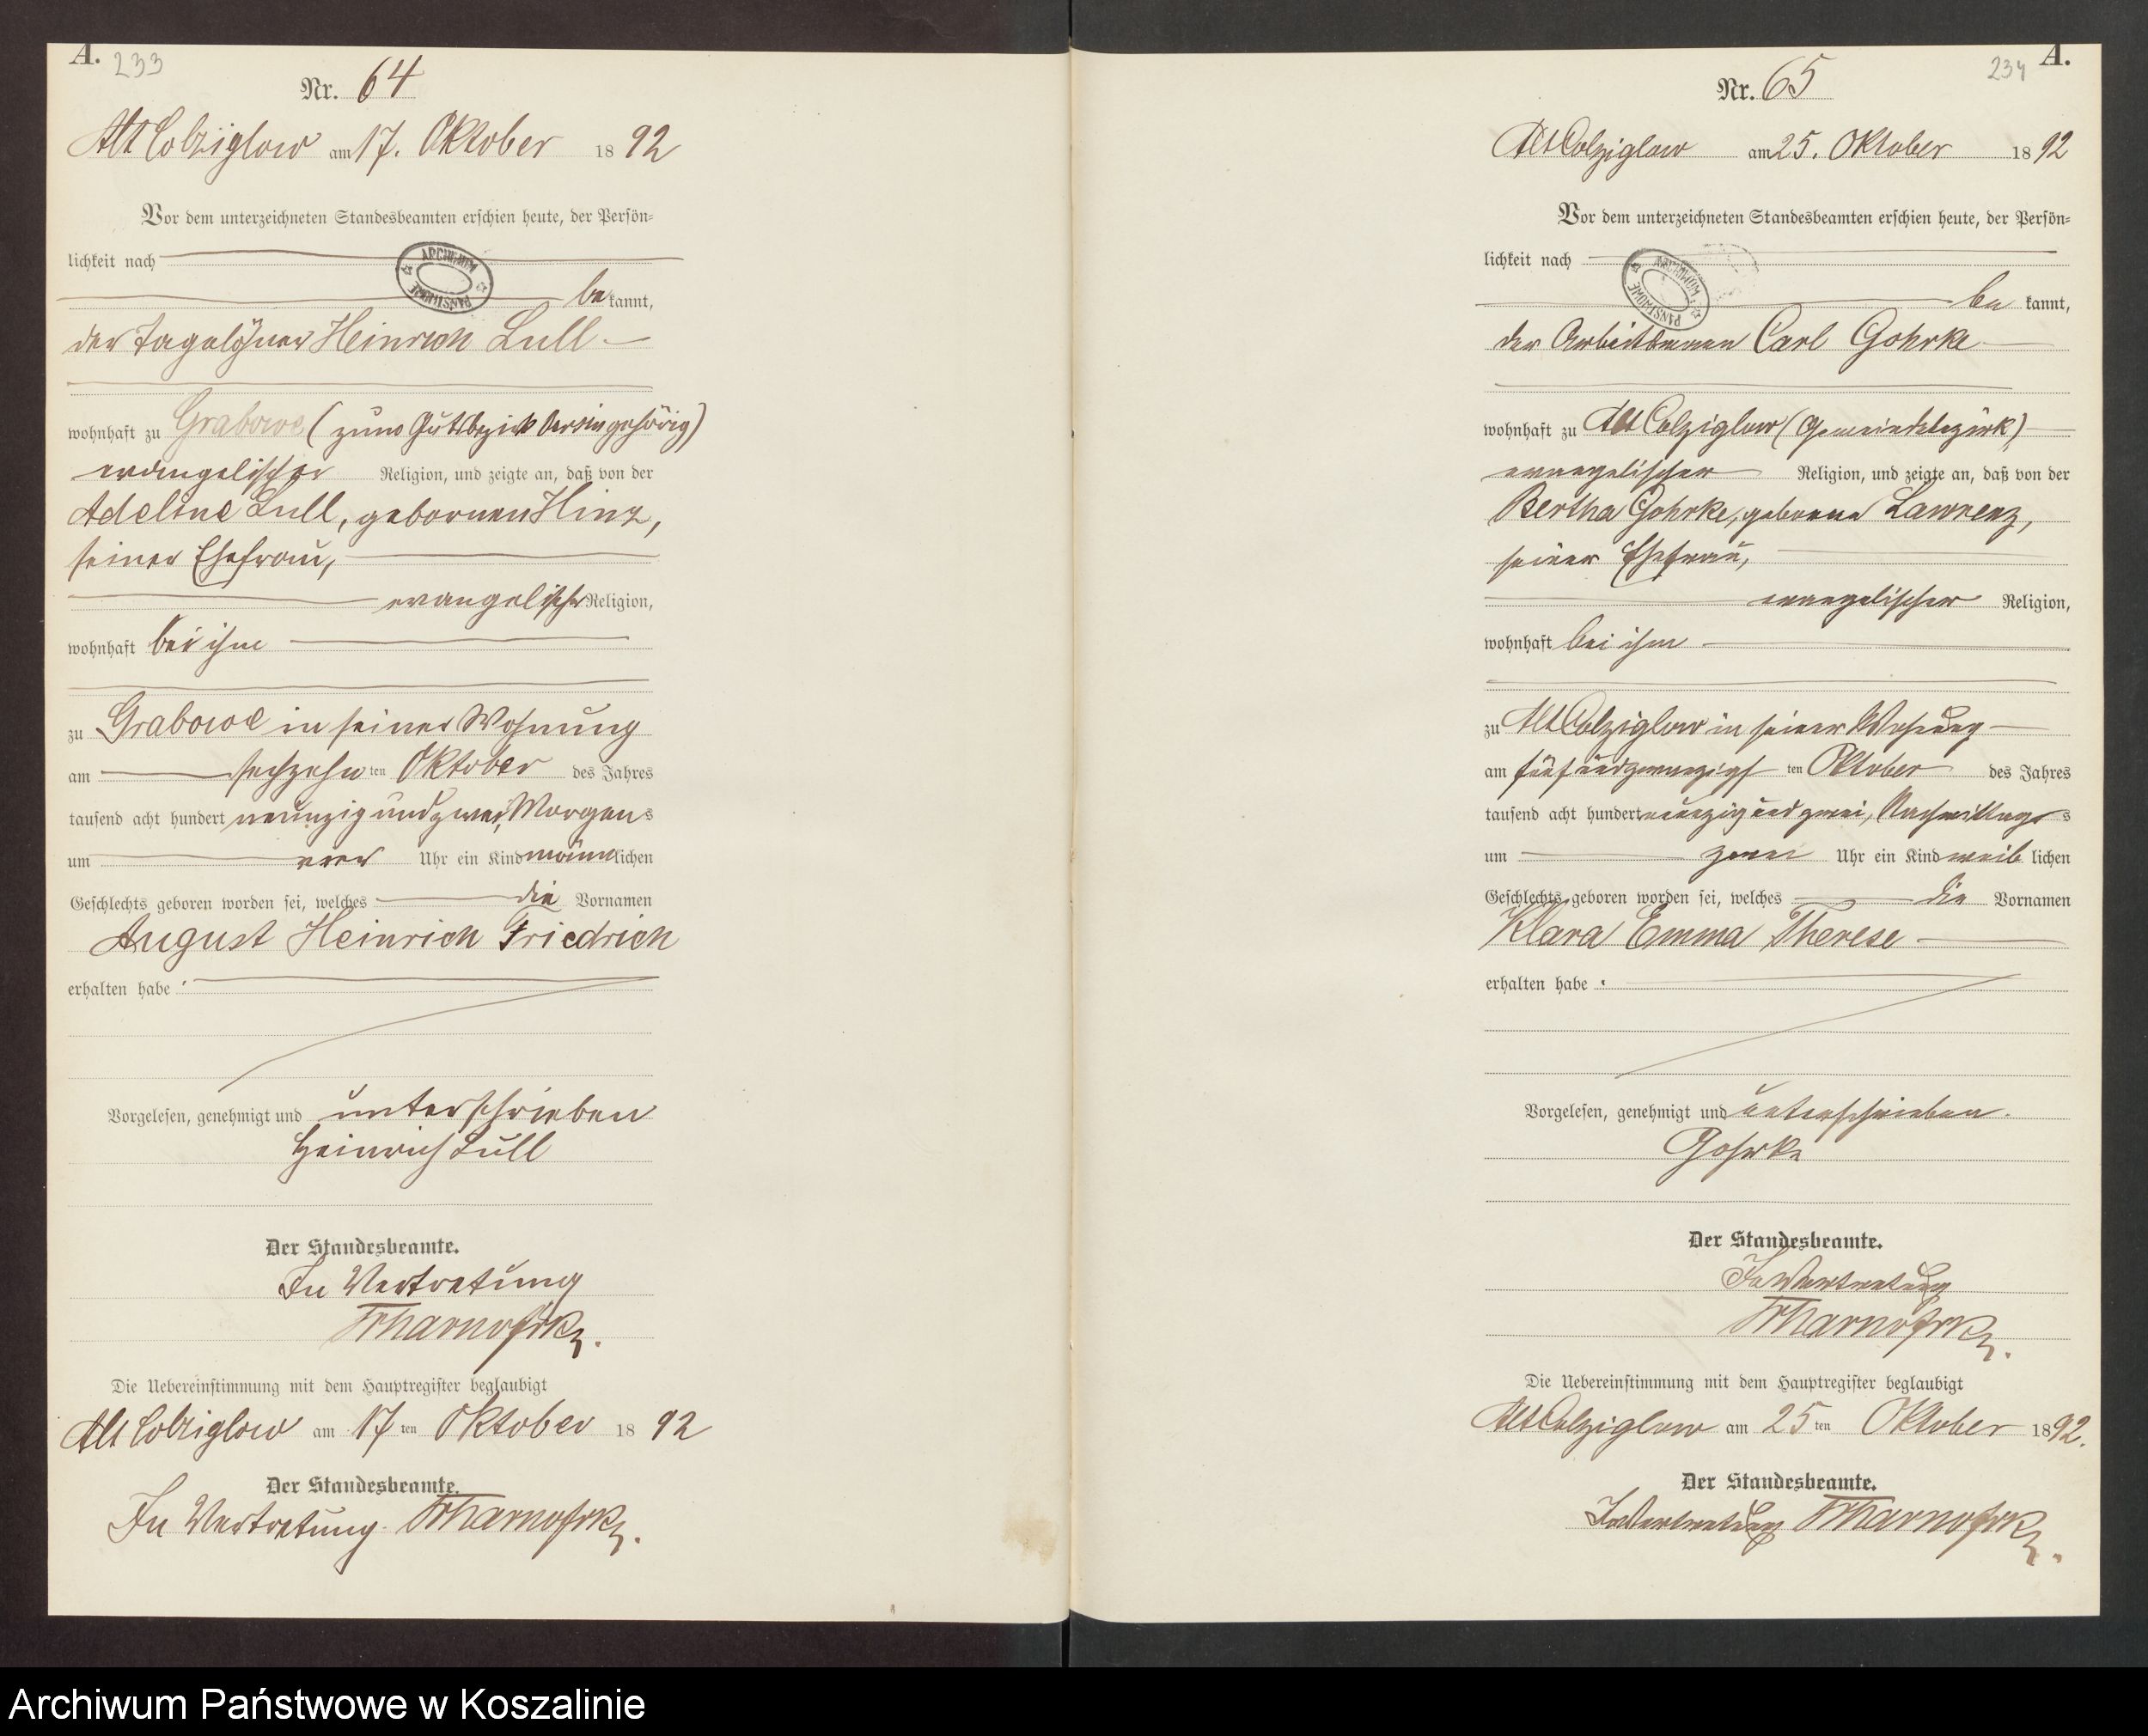 A. 233
Nr. 64
Alt Colziglow am 17. Oktober 1892
Vor dem unterzeichneten Standesbeamten erschien heute, der Persön-
lichkeit nach
ARCHIWUM PAŃSTWOWE
be kannt,
der Tagelöhner Heinrich Lull
wohnhaft zu Grabowe (zum Gutsbezirk gehörig)
evangelischer Religion, und zeigte an, daß von der
Adeline Lull, gebornen Hinz,
seiner Ehefrau,
evangelischer Religion,
wohnhaft bei ihm
zu Grabowe in seiner Wohnung
am sechzehn ten Oktober des Jahres
tausend acht hundert neunzig und zwei, Morgens
um vier Uhr ein Kind männlichen
Geschlechts geboren worden sei, welches die Vornamen
August Heinrich Friedrich
erhalten habe.
Vorgelesen, genehmigt und unterschrieben
Heinrich Lull
Der Standesbeamte.
In Vertretung
Die Uebereinstimmung mit dem Hauptregister beglaubigt
Alt Colziglow am 17 ten Oktober 1892
Der Standesbeamte.
In Vertretung.
234 A.
Nr. 65
Alt Colziglow am 25. Oktober 1892
Vor dem unterzeichneten Standesbeamten erschien heute, der Persön-
lichkeit nach
ARCHIWUM PAŃSTWOWE
be kannt,
der Arbeitsmann Carl Gohrke
wohnhaft zu Alt Colziglow (Gemeindebezirk)
evangelischer Religion, und zeigte an, daß von der
Bertha Gohrke, geborene Lawrenz,
seiner Ehefrau,
evangelischer Religion,
wohnhaft bei ihm
zu Alt Colziglow in seiner Wohnung
am fünfundzwanzigst ten Oktober des Jahres
tausend acht hundert neunzig und zwei, Nachmittags
um zwei Uhr ein Kind weiblichen
Geschlechts geboren worden sei, welches die Vornamen
Klara Emma Therese
erhalten habe.
Vorgelesen, genehmigt und unterschrieben.
Gohrke
Der Standesbeamte.
In Vertretung
Die Uebereinstimmung mit dem Hauptregister beglaubigt
Alt Colziglow am 25 ten Oktober 1892.
Der Standesbeamte.
In Vertretung
Archiwum Państwowe w Koszalinie